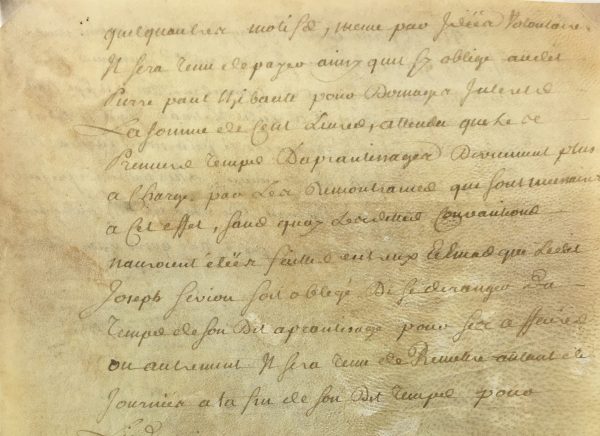 quelquautres motifs, meme par idées Volontaire
Il sera tenu de payer ainsy quil sy oblige audit
Pierre paul Thibault pour Domages Interets
La somme de Cent Livres, attendu que Le
Premiere temps Daprantissages Deviennent plus
a Charge par Les Remontrances que sont
a Cet effet, sans quoy Lesdittes Conventions
nauroient étées faittes entreux Et mes que Ledit
Joseph soit oblegé De se deranger La
temps de son Dit aprantissage pour ses affaires
ou autrement Il sera tenu de Remettre autant de
Journées a la fin de son Dit temps pour